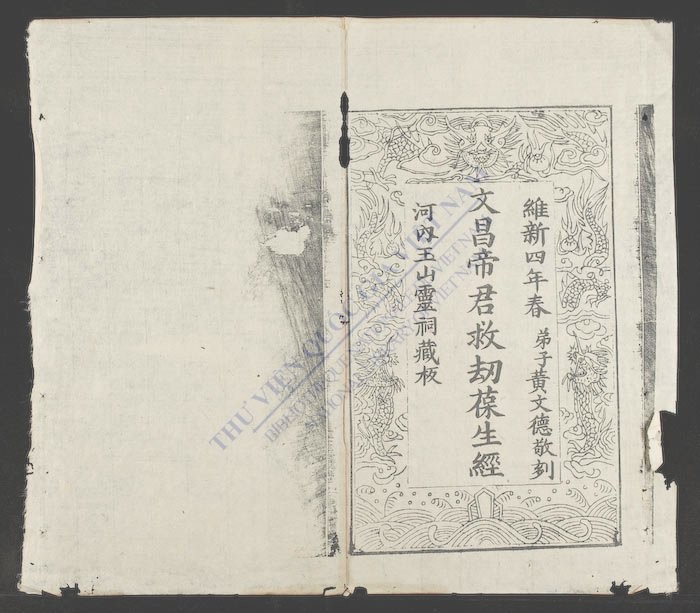 維新四年春 弟子黃文德敬刻
文昌帝君救刼葆生經
河內玉山靈祠藏板
THƯ VIỆN QUỐC GIA VIỆT NAM
BIBLIOTHEQUE NATIONALE DU VIETNAM
NATIONAL LIBRARY OF VIETNAM